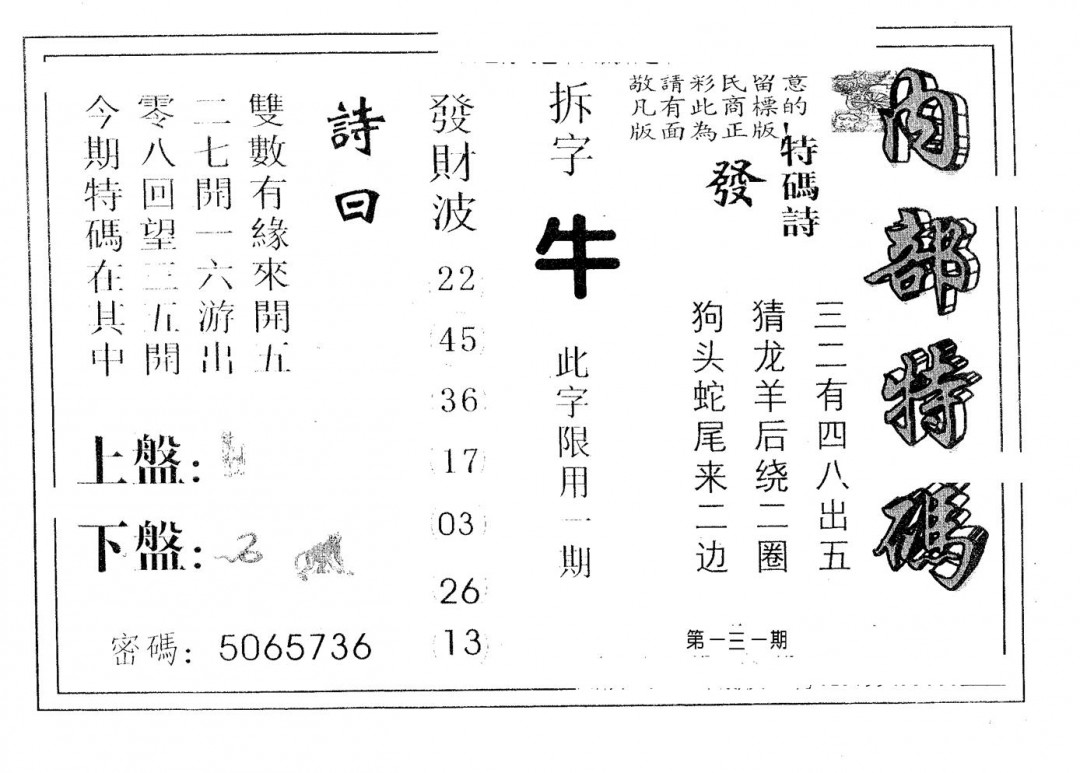 內部特碼
敬請彩民留意
凡有此商標的
版面為正版
特碼詩
發
三二有四八出五
猜龙羊后绕二圈
狗头蛇尾来二边
第一三一期
拆字
牛
此字限用一期
發財波
22
45
36
17
03
26
13
詩曰
雙數有緣來開五
二七開一六游出
零八回望三五開
今期特碼在其中
上盤:
下盤:
密碼: 5065736